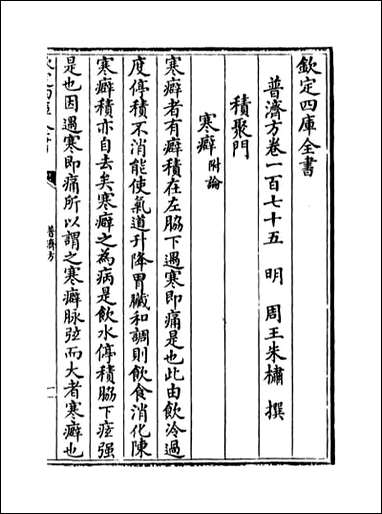 欽定四庫全書
普濟方卷一百七十五 明 周王朱橚 撰
積聚門
寒癖 附論
寒癖者有癖積在左脇下遇寒即痛是也此由飲冷過
度停積不消能使氣道升降胃臟和調則飲食消化陳
寒癖積亦自去矣寒癖之為病是飲水停積脇下痃强
是也因遇寒即痛所以謂之寒癖脉弦而大者寒癖也
普濟方